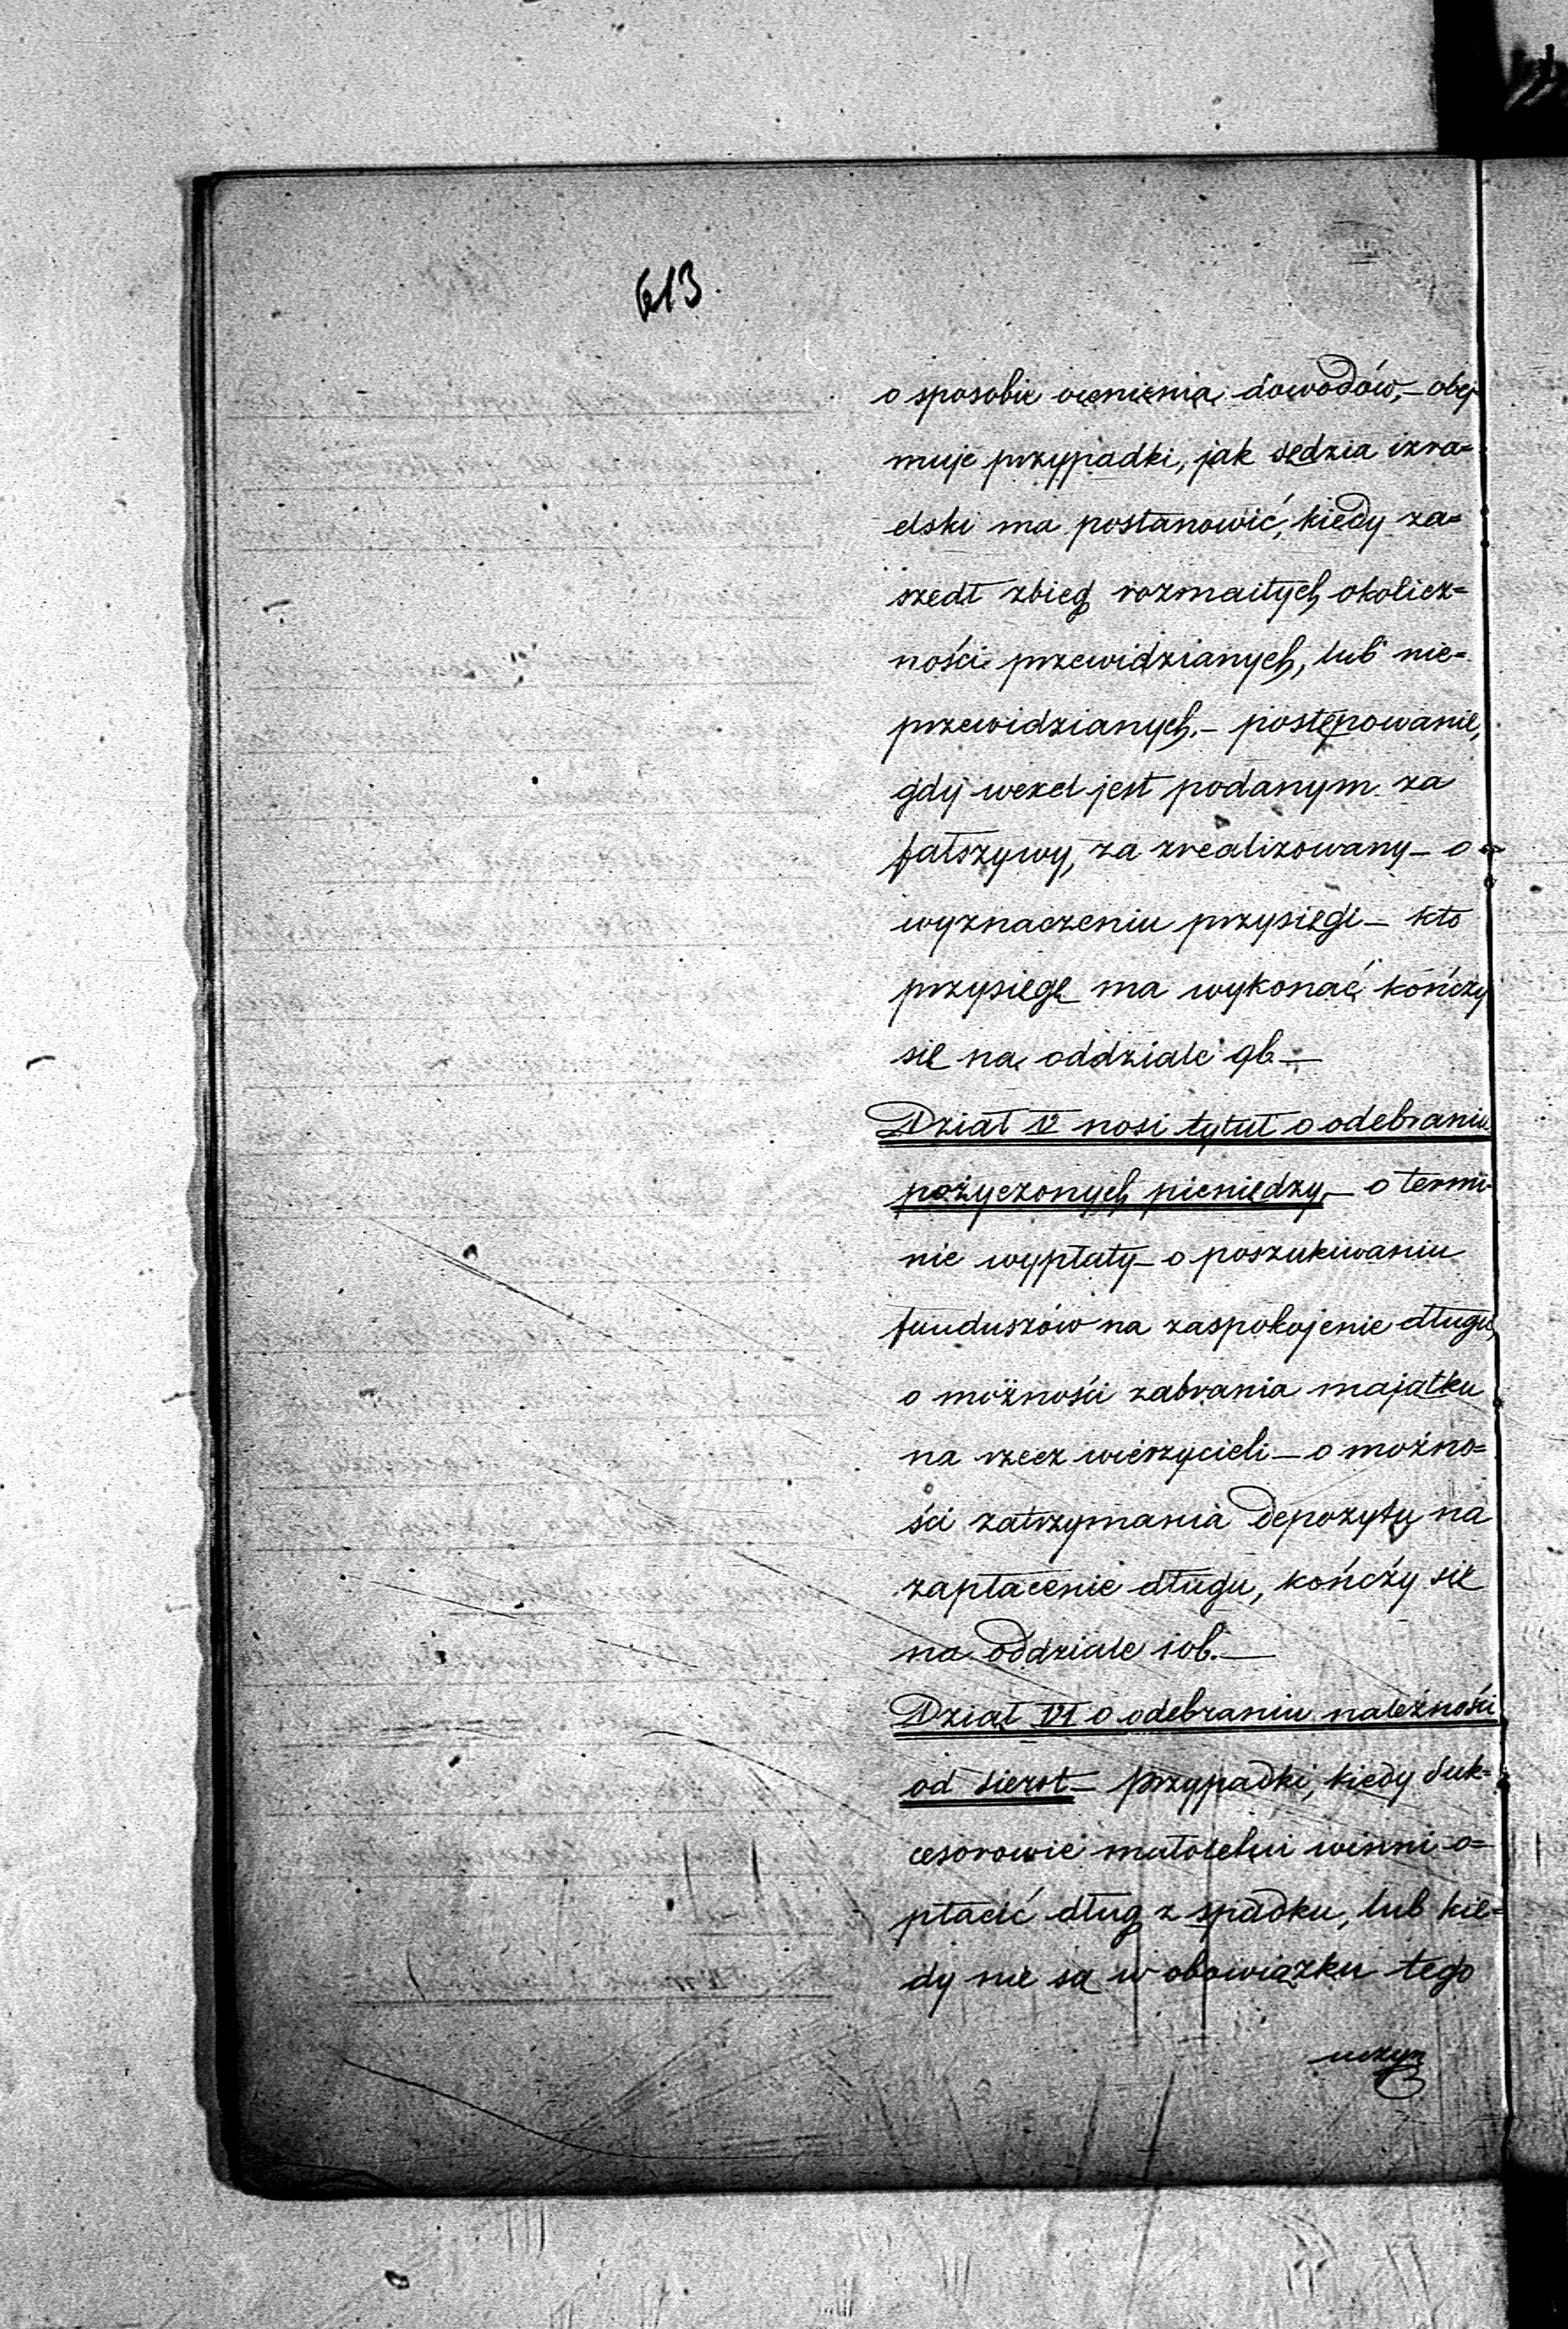 613.
o sposobie ocenienia dowodów,– obej
muje przypadki, jak sędzia izra=
elski ma postanowić, kiedy za=
szedł zbieg rozmaitych okolicz=
ności przewidzianych, lub nie=
przewidzianych.– postępowanie,
gdy wexel jest podanym za
fałszywy, za zrealizowany – o
wyznaczeniu przysięgi – kto
przysięgę ma wykonać, kończy
się na oddziale 96.—
Dział V nosi tytuł o odebraniu
pożyczonych pieniędzy,– o termi-
nie wypłaty – o poszukiwaniu
funduszów na zaspokojenie długu,
o możności zabrania majątku
na rzecz wierzycieli – o możno=
ści zatrzymania depozytu na
zapłacenie długu, kończy się
na oddziale 106.—
Dział VI o odebraniu należności
od sierot – przypadki, kiedy suk=
cesorowie małoletni winni o=
płacić dług z spadku, lub kie=
dy nie są w obowiązku tego
uczyn